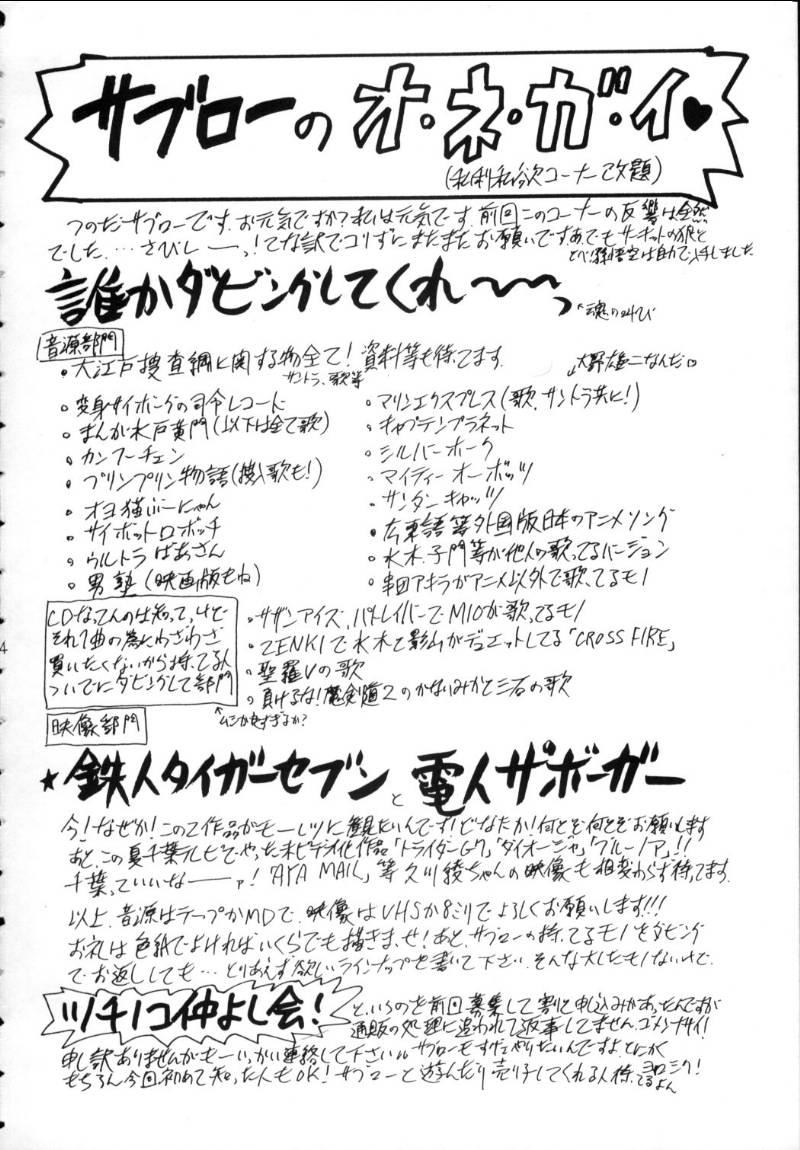 サブローの オ・ネ・ガ・イ♥
(私利私欲コーナー改題)
つのだサブローです。お元気ですか?私は元気です。前回このコーナーの反響は全然
でした…さびしーーっ!てな訳でコリずにまたまたお願いです。あ、でもサーキットの狼と
とべ!孫悟空は自力で入手しました。
誰かダビングしてくれ〜〜〜っ
↑魂の叫び
音源部門
・大江戸捜査網に関する物全て!資料等も待ってます。
サントラ、歌等
・変身サイボーグの司令レコード
・まんが水戸黄門(以下は全て歌)
・カンフーチェン
・プリンプリン物語(挿入歌も!)
・オヨ猫ぶーにゃん
・サイボットロボッチ
・ウルトラばあさん
・男塾(映画版もね)
↓大野雄二なんだ♡
・マリンエクスプレス(歌、サントラ共に!)
・キャプテンプラネット
・シルバーホーク
・マイティーオーボッツ
・サンダーキャッツ
・広東語等外国版日本のアニメソング
・水木、子門等が他人の歌ってるバージョン
・串田アキラがアニメ以外で歌ってるモノ
CDなってんのは知ってっけど
それ1曲の為にわざわざ
買いたくないから持ってる人
ついでにダビングして部門
↑ムシが良すぎるか?
・サザンアイズ、パトレイバーでMIOが歌ってるモノ
・ZENKIで水木と影山がデュエットしてる「CROSS FIRE」
・聖羅Vの歌
・負けるな!魔剣道2のかないみかと三石の歌
映像部門
★鉄人タイガーセブンと電人ザボーガー
今!なぜか!この2作品がモーレツに観たいんです!どなたか!何とぞ何とぞお願いします
あと、この夏千葉テレビでやった未ビデオ化作品「トライダーG7」「ダイオージャ」「クルーノア」!!
千葉っていいなーーァ!「AYA MAIL」等久川綾ちゃんの映像も相変わらず待ってます。
以上、音源はテープかMDで、映像はVHSか8ミリでよろしくお願いします!!!
お礼は色紙でよければいくらでも描きまっせ!あと、サブローの持ってるモノをダビング
でお返ししても…とりあえず欲しいラインナップを書いて下さい。そんな大したモノないけど。
ツチノコ仲よし会!
というのを前回募集して割と申込みがあったんですが
通販の処理に追われて返事してません。ゴメンナサイ!
申し訳ありませんがもーいっかい連絡して下さい。サブローもすげェやりたいんですよ、とにかく
もちろん今回初めて知った人もOK!サブローと遊んだり売り子してくれる人待ってるよん
ヨロシク!
4